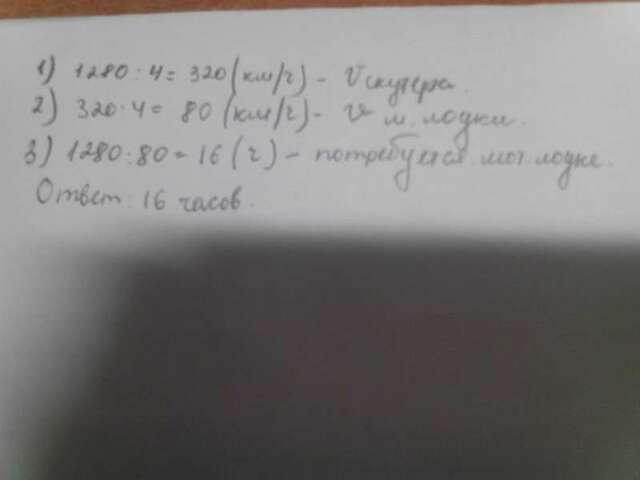 1) 1280:4= 320(км/ч) - V скутера.
2) 320·4= 80 (км/ч)- V м. лодки.
3) 1280:80=16 (ч) - потребуется мот лодке.
Ответ: 16 часов.